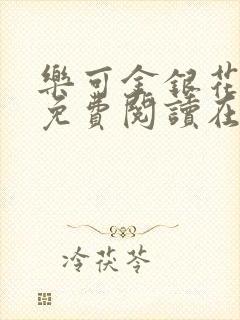 樂可金銀花
免費閱讀在
冷茯苓